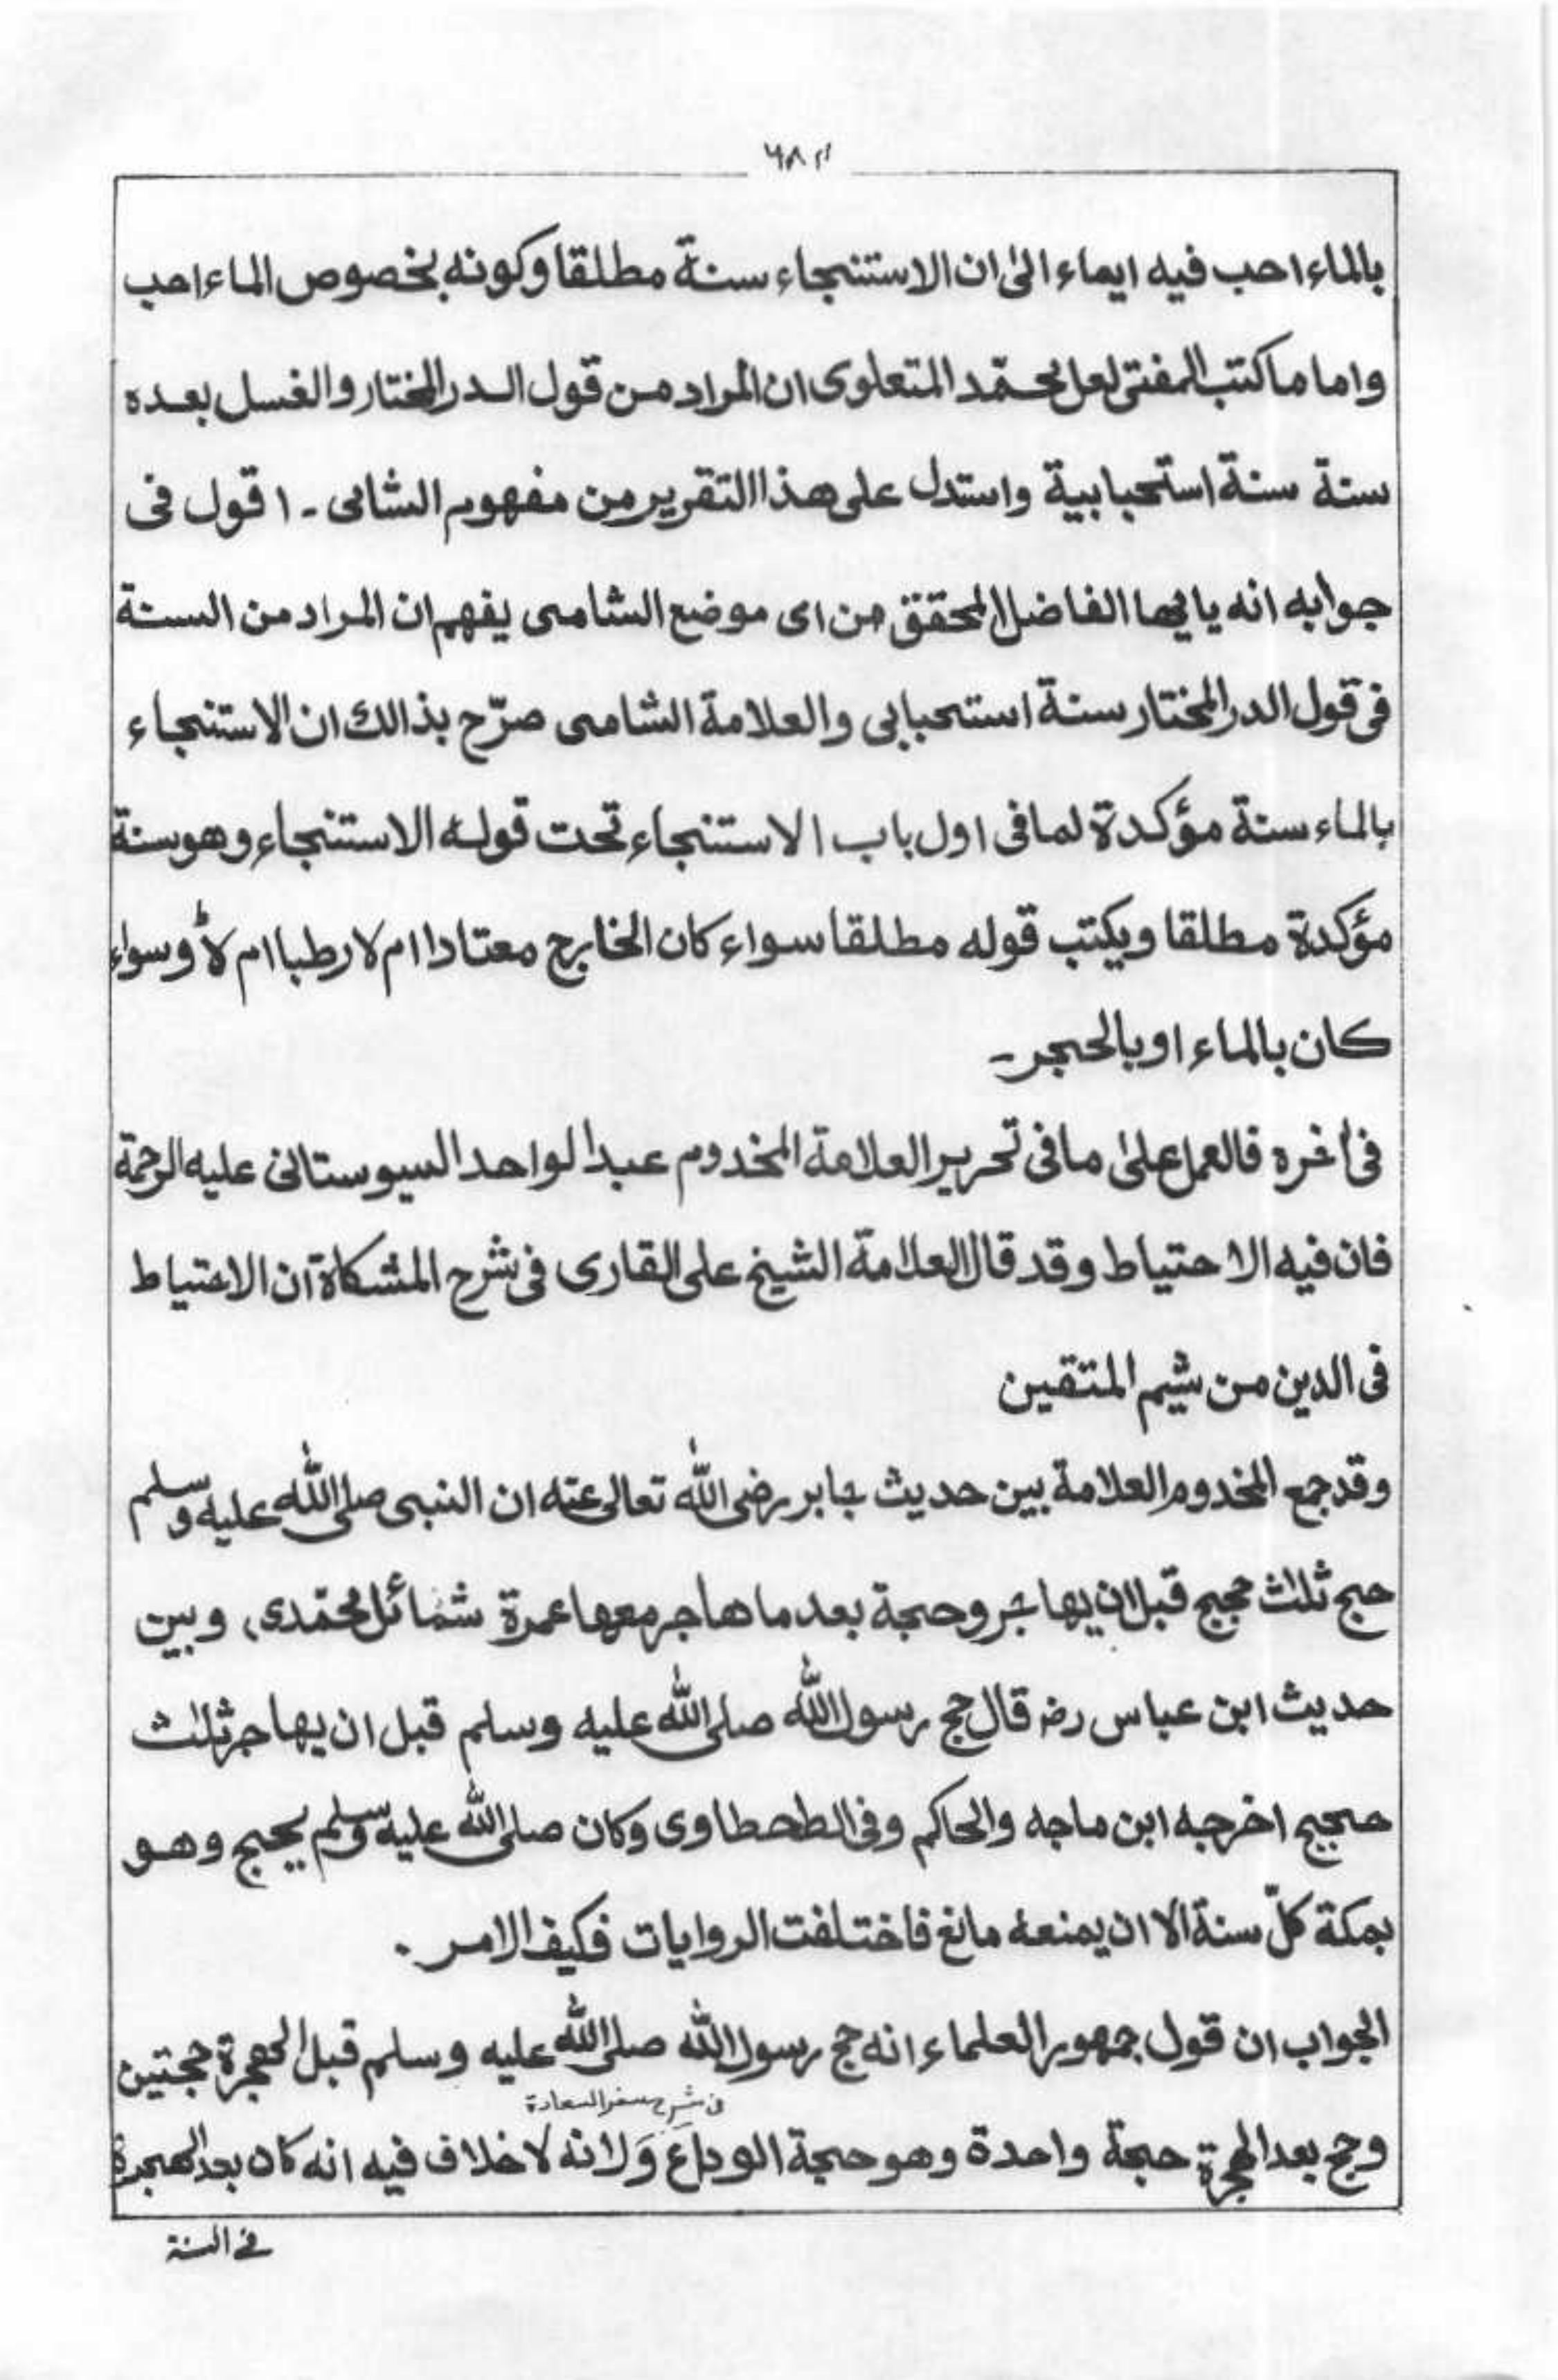 بالماء احب فيه ايماء الى ان الاستنجاء سنة مطلقا وكونه بخصوص الماء احب
واما ما كتب المفتى لعل محمّد المتعلوى ان المراد من قول الدر المختار والغسل بعده
سنة سنة استحبابية واستدل على هذا التقرير من مفهوم الشامى - اقول فى
جوابه انه يا ايها الفاضل المحقق من اى موضع الشامى يفهم ان المراد من السنة
فى قول الدر المختار سنة استحبابى والعلامة الشامى صرّح بذالك ان الاستنجاء
بالماء سنة مؤكدة لما فى اول باب الاستنجاء تحت قوله الاستنجاء وهو سنة
مؤكدة مطلقا ويكتب قوله مطلقا سواء كان الخارج معتادا ام لا رطبا ام لا وسواء
كان بالماء او بالحجر -
فى اخره فالعمل على ما فى تحرير العلامة المخدوم عبد الواحد السيوستانى عليه الرحمة
فان فيه الاحتياط وقد قال العلامة الشيخ على القارى فى شرح المشكاة ان الاحتياط
فى الدين من شيم المتقين
وقد جمع المخدوم العلامة بين حديث جابر رضى الله تعالى عنه ان النبى صلى الله عليه وسلم
حج ثلث حجج قبل ان يهاجر وحجة بعد ما هاجر معها عمرة شمائل محمّدى، وبين
حديث ابن عباس رض قال حج رسول الله صلى الله عليه وسلم قبل ان يهاجر ثلث
حجج اخرجه ابن ماجه والحاكم وفى الطحطاوى وكان صلى الله عليه وسلم يحج وهو
بمكة كلّ سنة الا ان يمنعه مانع فاختلفت الروايات فكيف الامر .
الجواب ان قول جمهور العلماء انه حج رسول الله صلى الله عليه وسلم قبل الهجرة حجتين
فى شرح سفر السعادة
وحج بعد الهجرة حجة واحدة وهو حجة الوداع وَلانه لا خلاف فيه انه كان بعد الهجرة
فى السنة